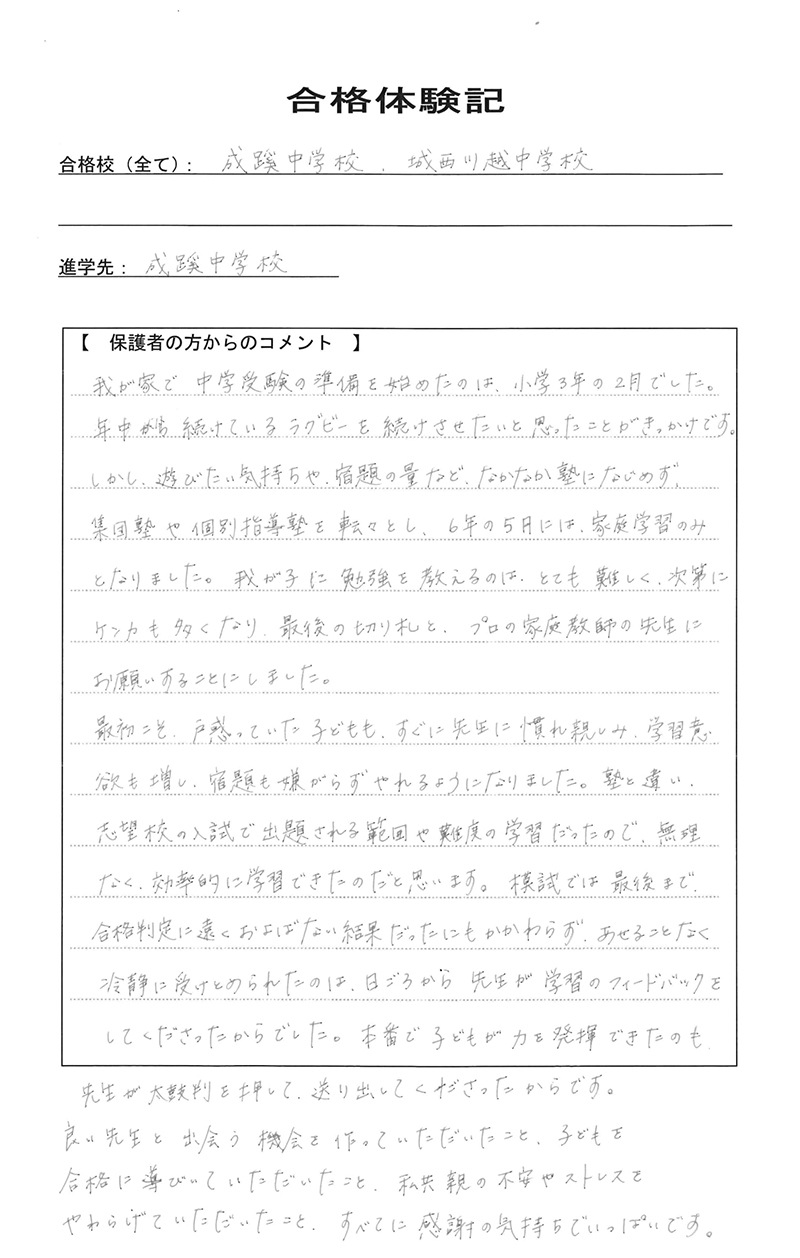 合格体験記
合格校（全て）： 成蹊中学校 、 城西川越中学校
進学先： 成蹊中学校
【 保護者の方からのコメント 】
我が家で中学受験の準備を始めたのは、小学3年の2月でした。
年中から続けているラグビーを続けさせたいと思ったことがきっかけです。
しかし、遊びたい気持ちや、宿題の量など、なかなか塾になじめず、
集団塾や個別指導塾を転々とし、6年の5月には、家庭学習のみ
となりました。我が子に勉強を教えるのは、とても難しく、次第に
ケンカも多くなり、最後の切り札と、プロの家庭教師の先生に
お願いすることにしました。
最初こそ、戸惑っていた子どもも、すぐに先生に慣れ親しみ、学習意
欲も増し、宿題も嫌がらずやれるようになりました。塾と違い、
志望校の入試で出題される範囲や難度の学習だったので、無理
なく、効率的に学習できたのだと思います。模試では最後まで、
合格判定に遠くおよばない結果だったにもかかわらず、あせることなく
冷静に受けとめられたのは、日ごろから先生が学習のフィードバックを
してくださったからでした。本番で子どもが力を発揮できたのも、
先生が太鼓判を押して、送り出してくださったからです。
良い先生と出会う機会を作っていただいたこと、子どもを
合格に導びいていただいたこと、私共親の不安やストレスを
やわらげていただいたこと、すべてに感謝の気持ちでいっぱいです。